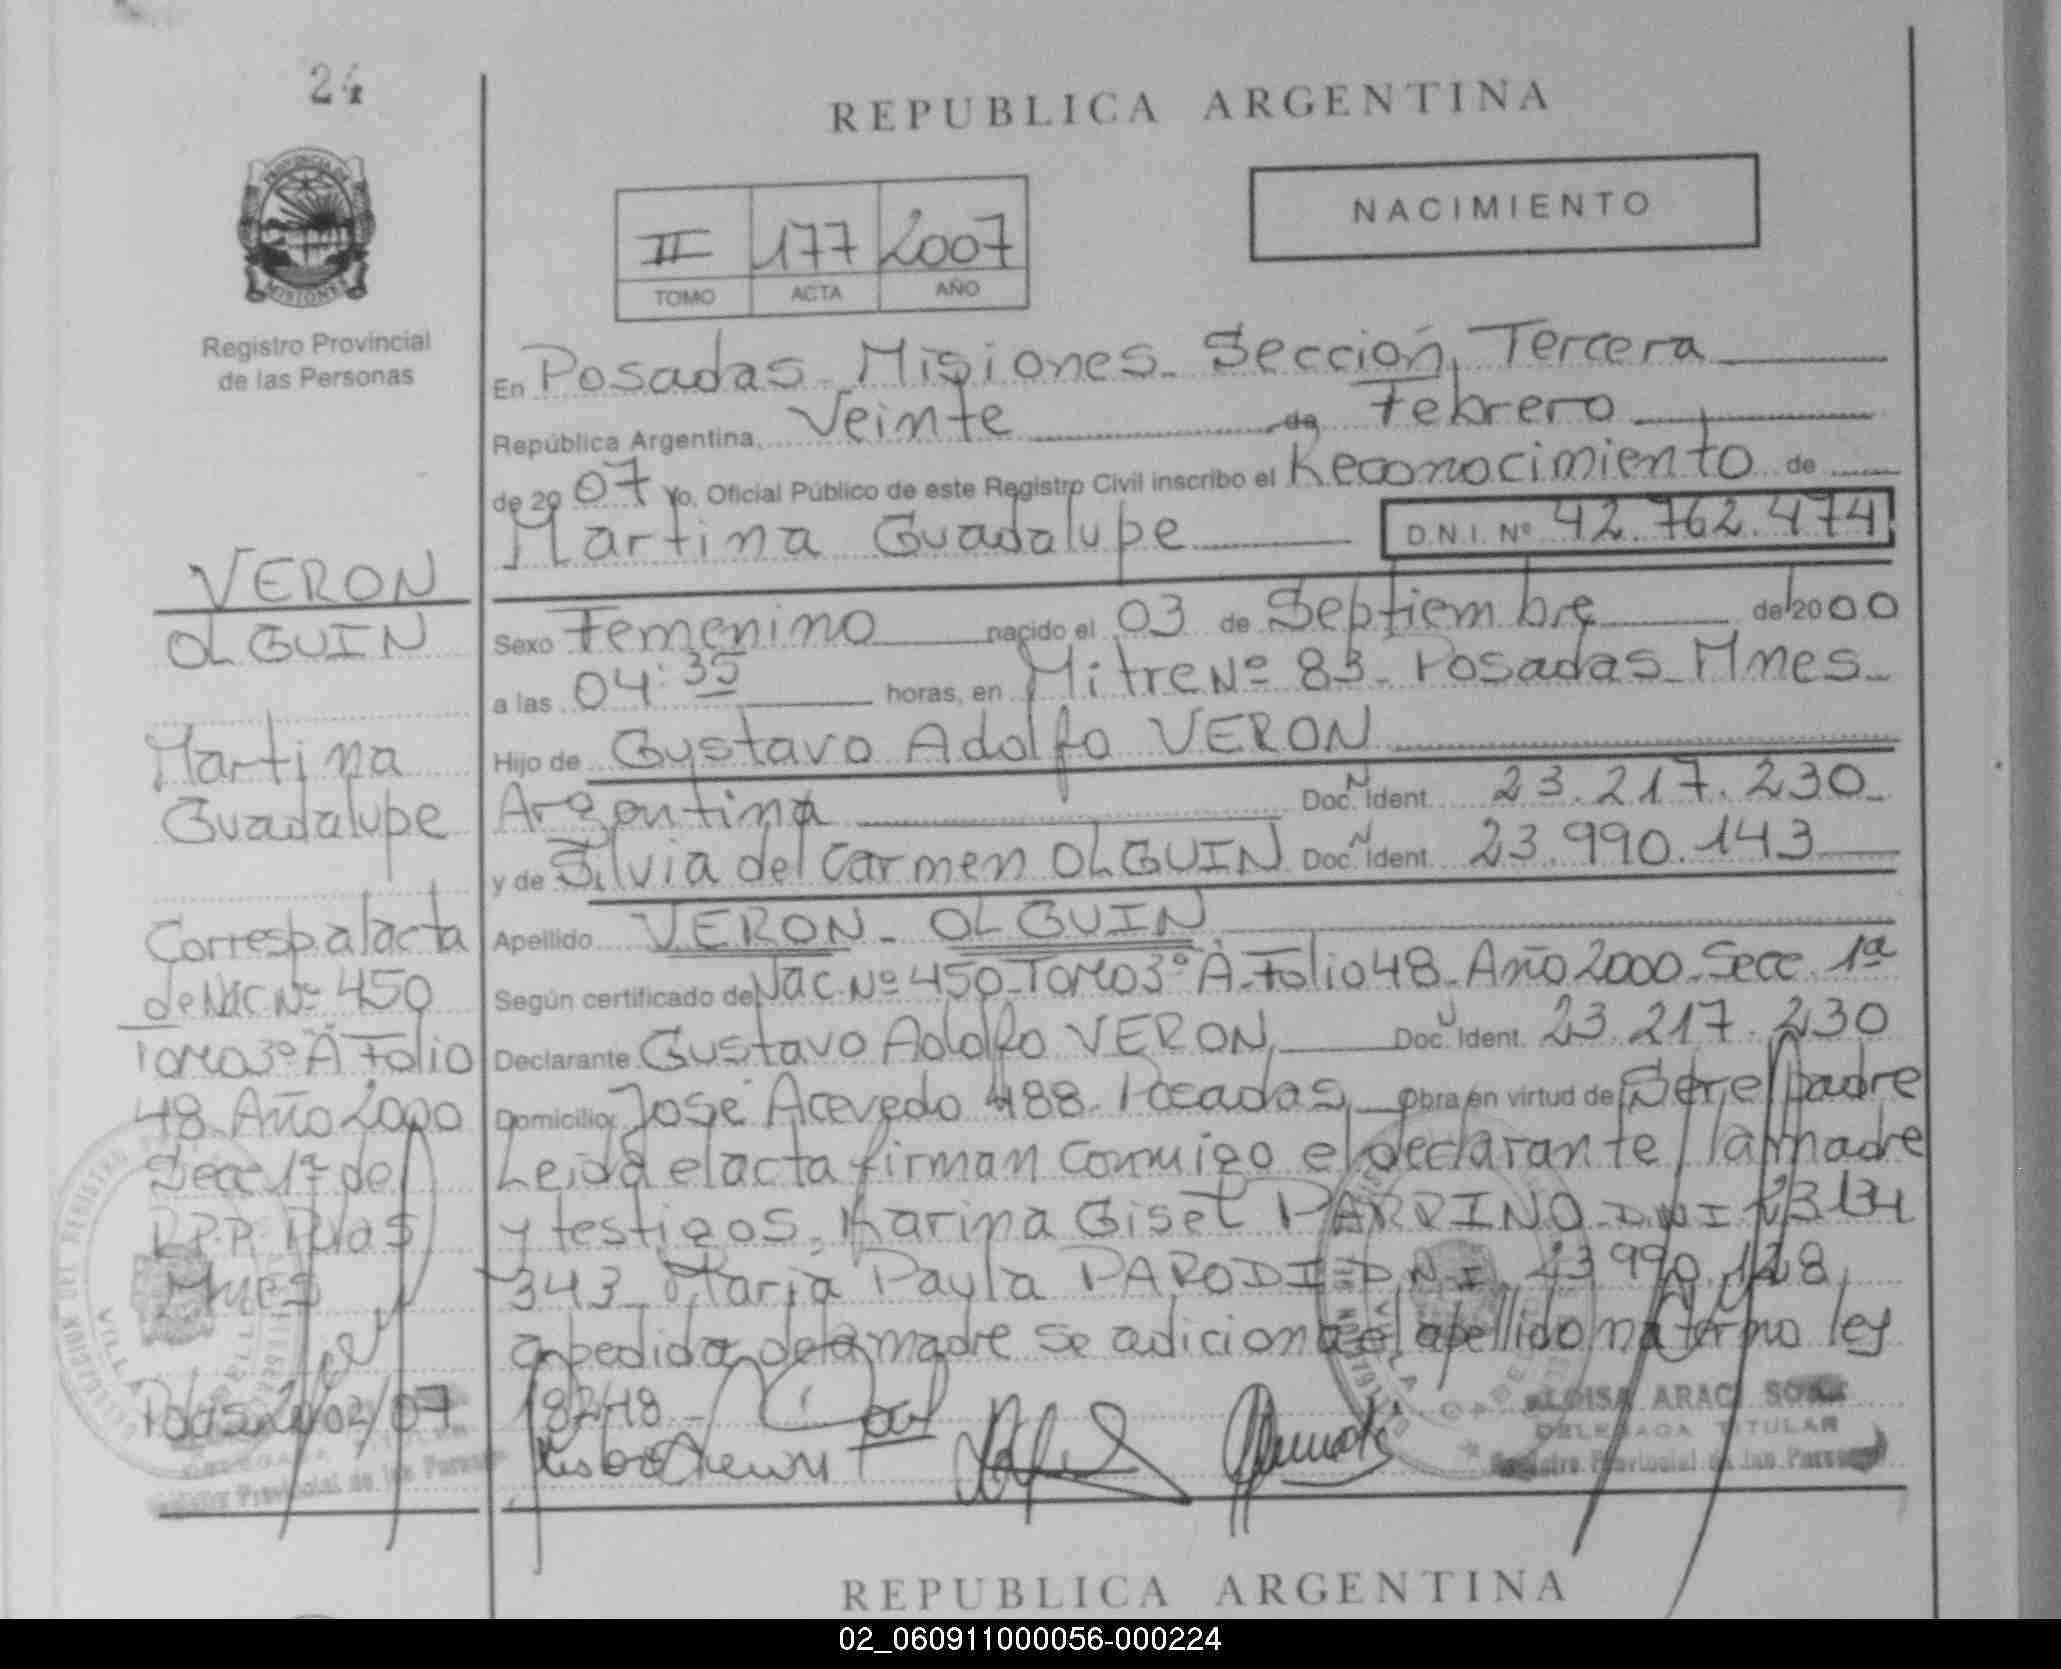 24
REPUBLICA ARGENTINA
PROVINCIA DE
MISIONES
Registro Provincial
de las Personas
II 177 2007
TOMO ACTA AÑO
NACIMIENTO
En Posadas - Misiones - Sección, Tercera
República Argentina, Veinte de Febrero
de 2007 Yo, Oficial Público de este Registro Civil inscribo el Reconocimiento de
Martina Guadalupe D.N.I. Nº 42.762.474
Sexo Femenino nacido el 03 de Septiembre de 2000
a las 04:35 horas, en Mitre Nº 83 - Posadas - Mnes -
Hijo de Gustavo Adolfo VERON
Argentina Doc. Ident. 23.217.230
y de Silvia del Carmen OLGUIN Doc. Ident. 23.990.143
Apellido VERON - OLGUIN
Según certificado de Nac Nº 450 - Tomo 3º A - Folio 48 - Año 2000 - Secc 1ª
Declarante Gustavo Adolfo VERON Doc. Ident. 23.217.230
Domicilio José Acevedo 488 - Posadas Obra en virtud de Ser el padre
Leida el acta firman conmigo el declarante, la madre
y testigos, Karina Gisel PARRINO - DNI 23134
343 - Maria Paula PARODI DNI 23 990.128,
a pedido de la madre se adiciona el apellido materno ley
18248 -
VERON
OLGUIN
Martina
Guadalupe
Corresp. al acta
de Nac Nº 450
Tomo 3º A Folio
48 Año 2000
Secc 1ª de
R.P.P. Pdas
Mnes
Pdas 02/07
ARACI
DELEGADA TITULAR
Registro Provincial de las Personas
Provincial de las Personas
REPUBLICA ARGENTINA
02_060911000056-000224